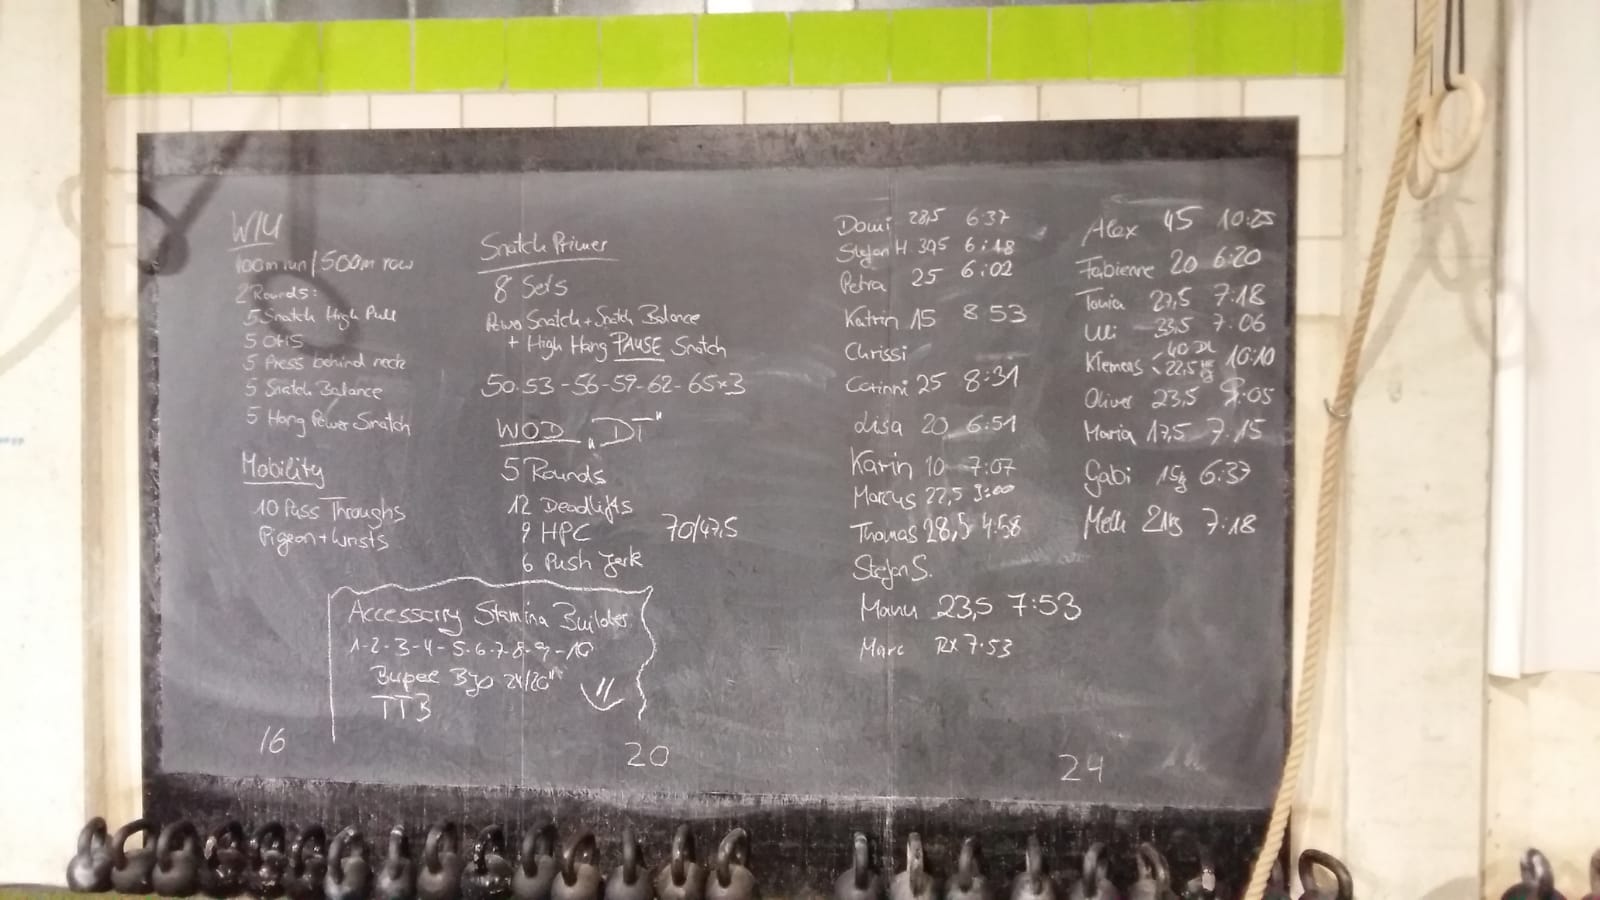 WU
400m run/500m row
2 Rounds:
5 Snatch High Pull
5 OHS
5 Press behind neck
5 Snatch Balance
5 Hang Power Snatch
Mobility
10 Pass Throughs
Pigeon + Wrists
Snatch Primer
8 Sets
Power Snatch + Snatch Balance
+ High Hang PAUSE Snatch
50-53-56-59-62-65x3
WOD „DT"
5 Rounds
12 Deadlifts
9 HPC 70/47,5
6 Push Jerk
Accessory Stamina Builder
1-2-3-4-5-6-7-8-9-10
Burpee BJO 24/20"
TTB
16
20
24
Domi 28,5 6:37
Stefan H 39,5 6:18
Petra 25 6:02
Katrin 15 8 53
Chrissi
Corinni 25 8:31
Lisa 20 6:51
Karin 10 7:07
Marcus 22,5
Thomas 28,5 4:58
Stefan S.
Manu 23,5 7:53
Marc RX 7:53
Alex 45 10:25
Fabienne 20 6:20
Tania 27,5 7:18
Uli 33,5 7:06
Klemens 40 DL 22,5 10:10
Oliver 23,5
Maria 17,5 7.15
Gabi 6:37
Melli 21kg 7:18